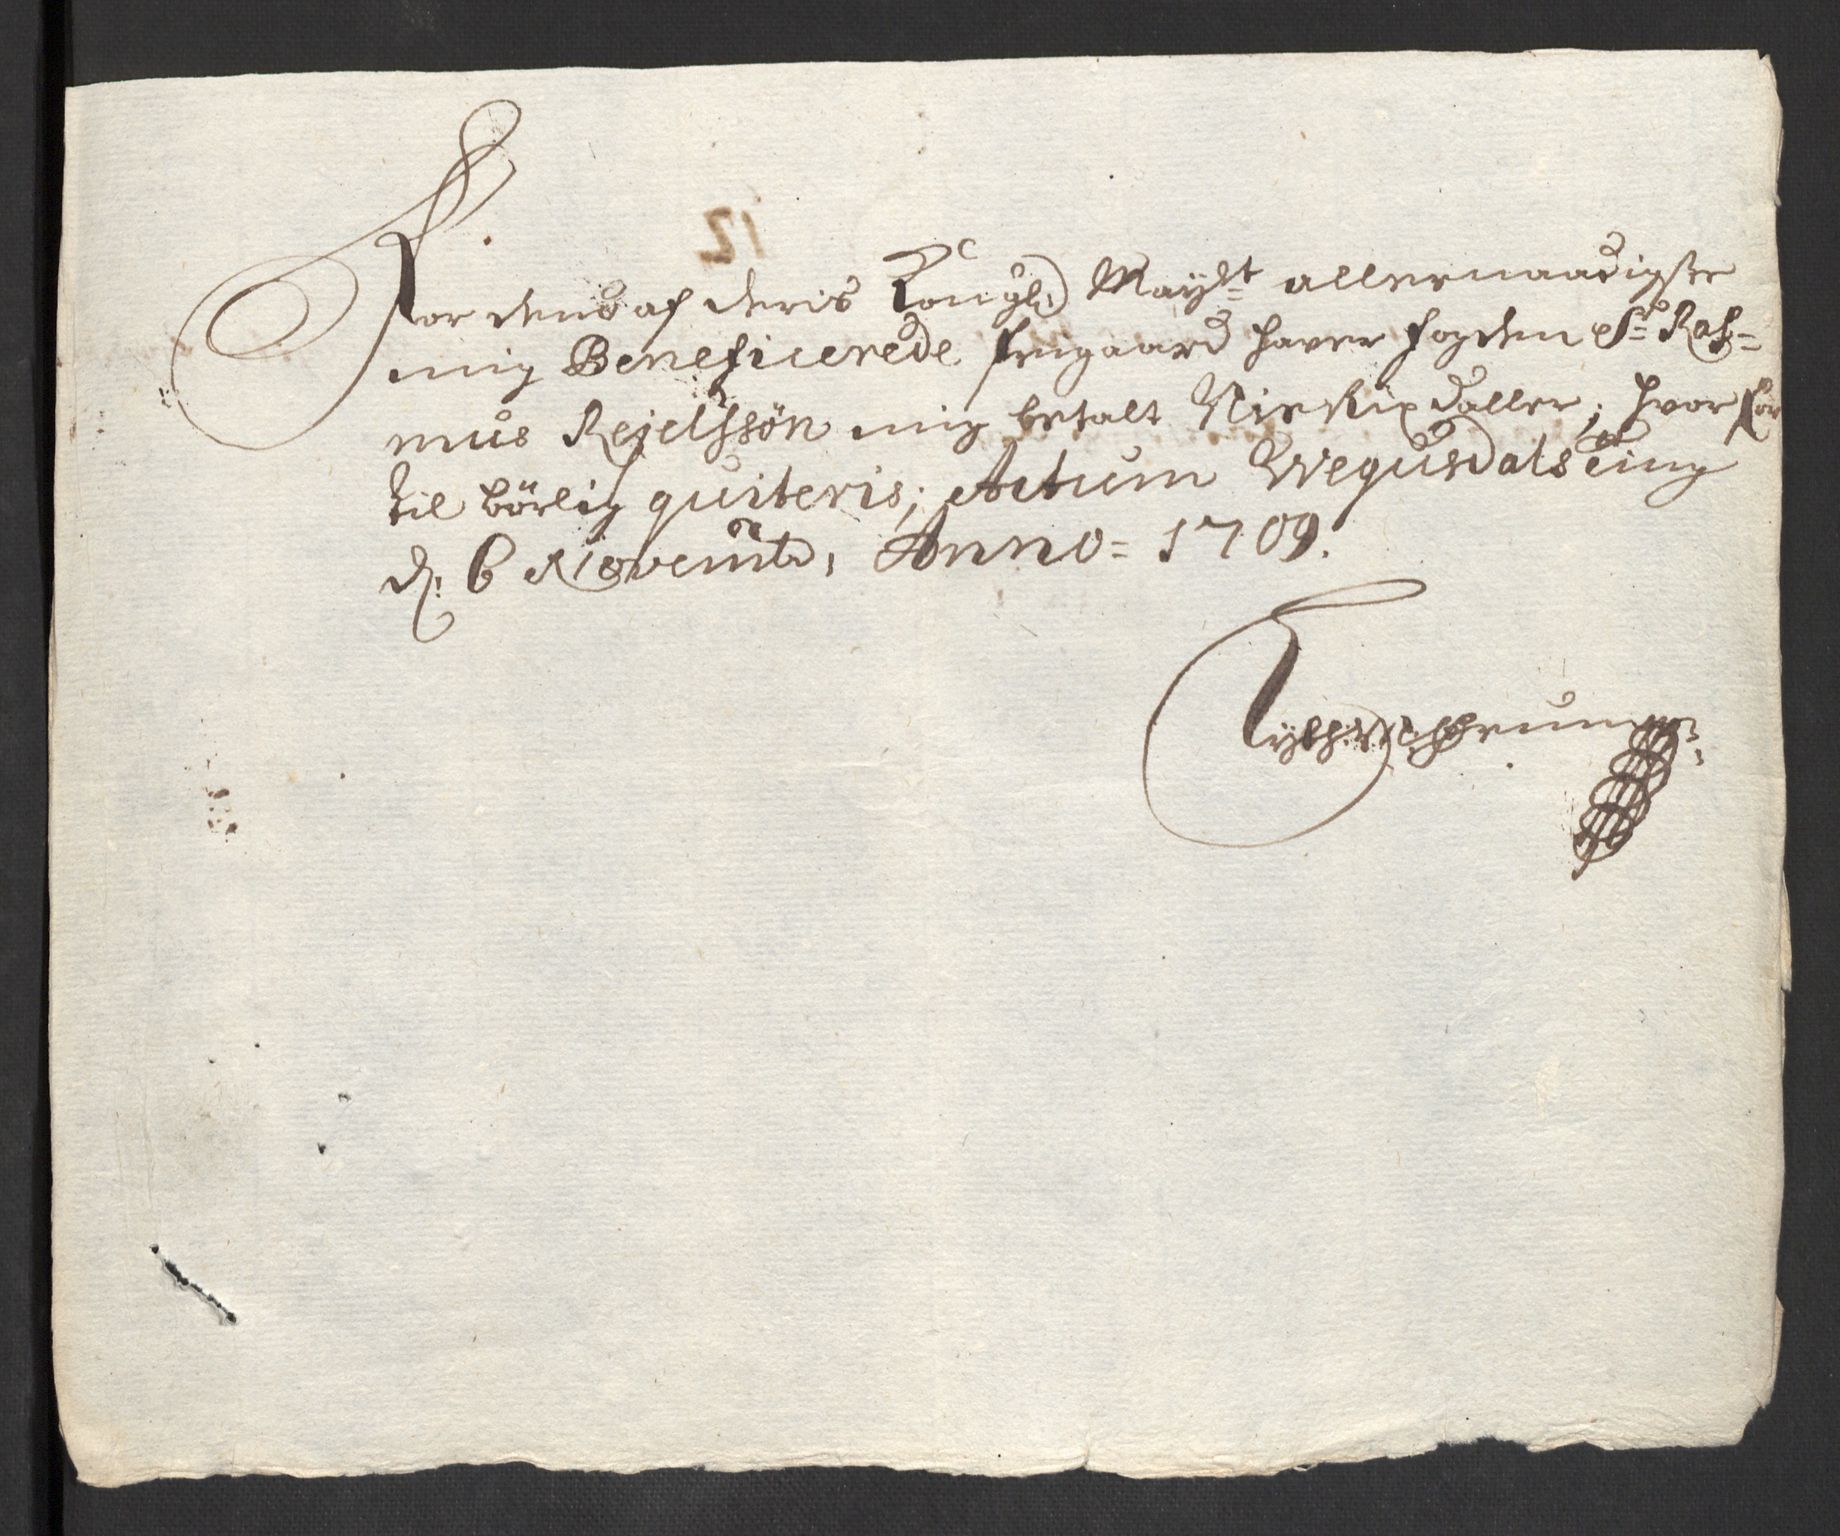 For dend af deris Kongl: Mayst allernaadigste
mig Beneficerede frugaard haver fogden Sr Ras=
mus Rejelssøn mig betalt Nie Rixdaller; hvor for
til børlig quiteris; Actum Wegusdals ting
d: 6 Novemb: Anno= 1709.